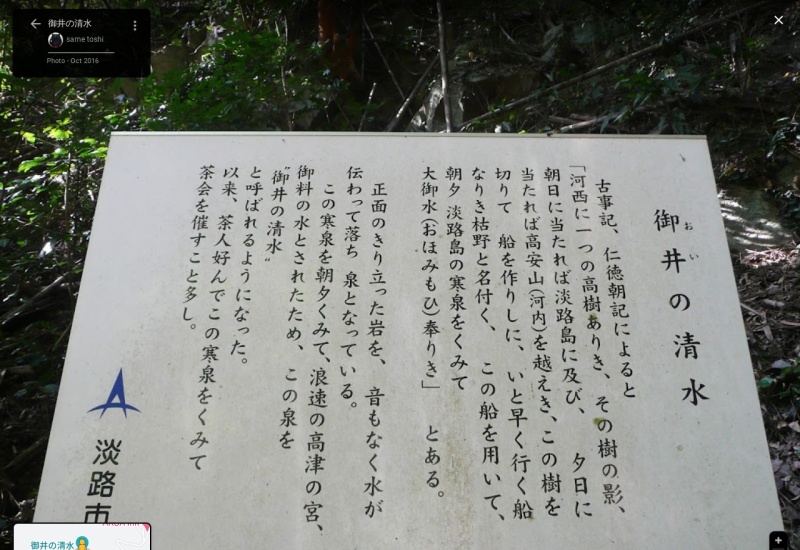 御井の清水
same toshi
Photo - Oct 2016
御井の清水
おい
古事記、仁徳朝記によると
「河西に一つの高樹ありき、その樹の影、
朝日に当たれば淡路島に及び、夕日に
当たれば高安山(河内)を越えき、この樹を
切りて 船を作りしに、いと早く行く船
なりき枯野と名付く、この船を用いて、
朝夕 淡路島の寒泉をくみて
大御水(おほみもひ)奉りき」 とある。
正面のきり立った岩を、音もなく水が
伝わって落ち 泉となっている。
この寒泉を朝夕くみて、浪速の高津の宮、
御料の水とされたため、この泉を
"御井の清水"
と呼ばれるようになった。
以来、茶人好んでこの寒泉をくみて
茶会を催すこと多し。
淡路市
御井の清水